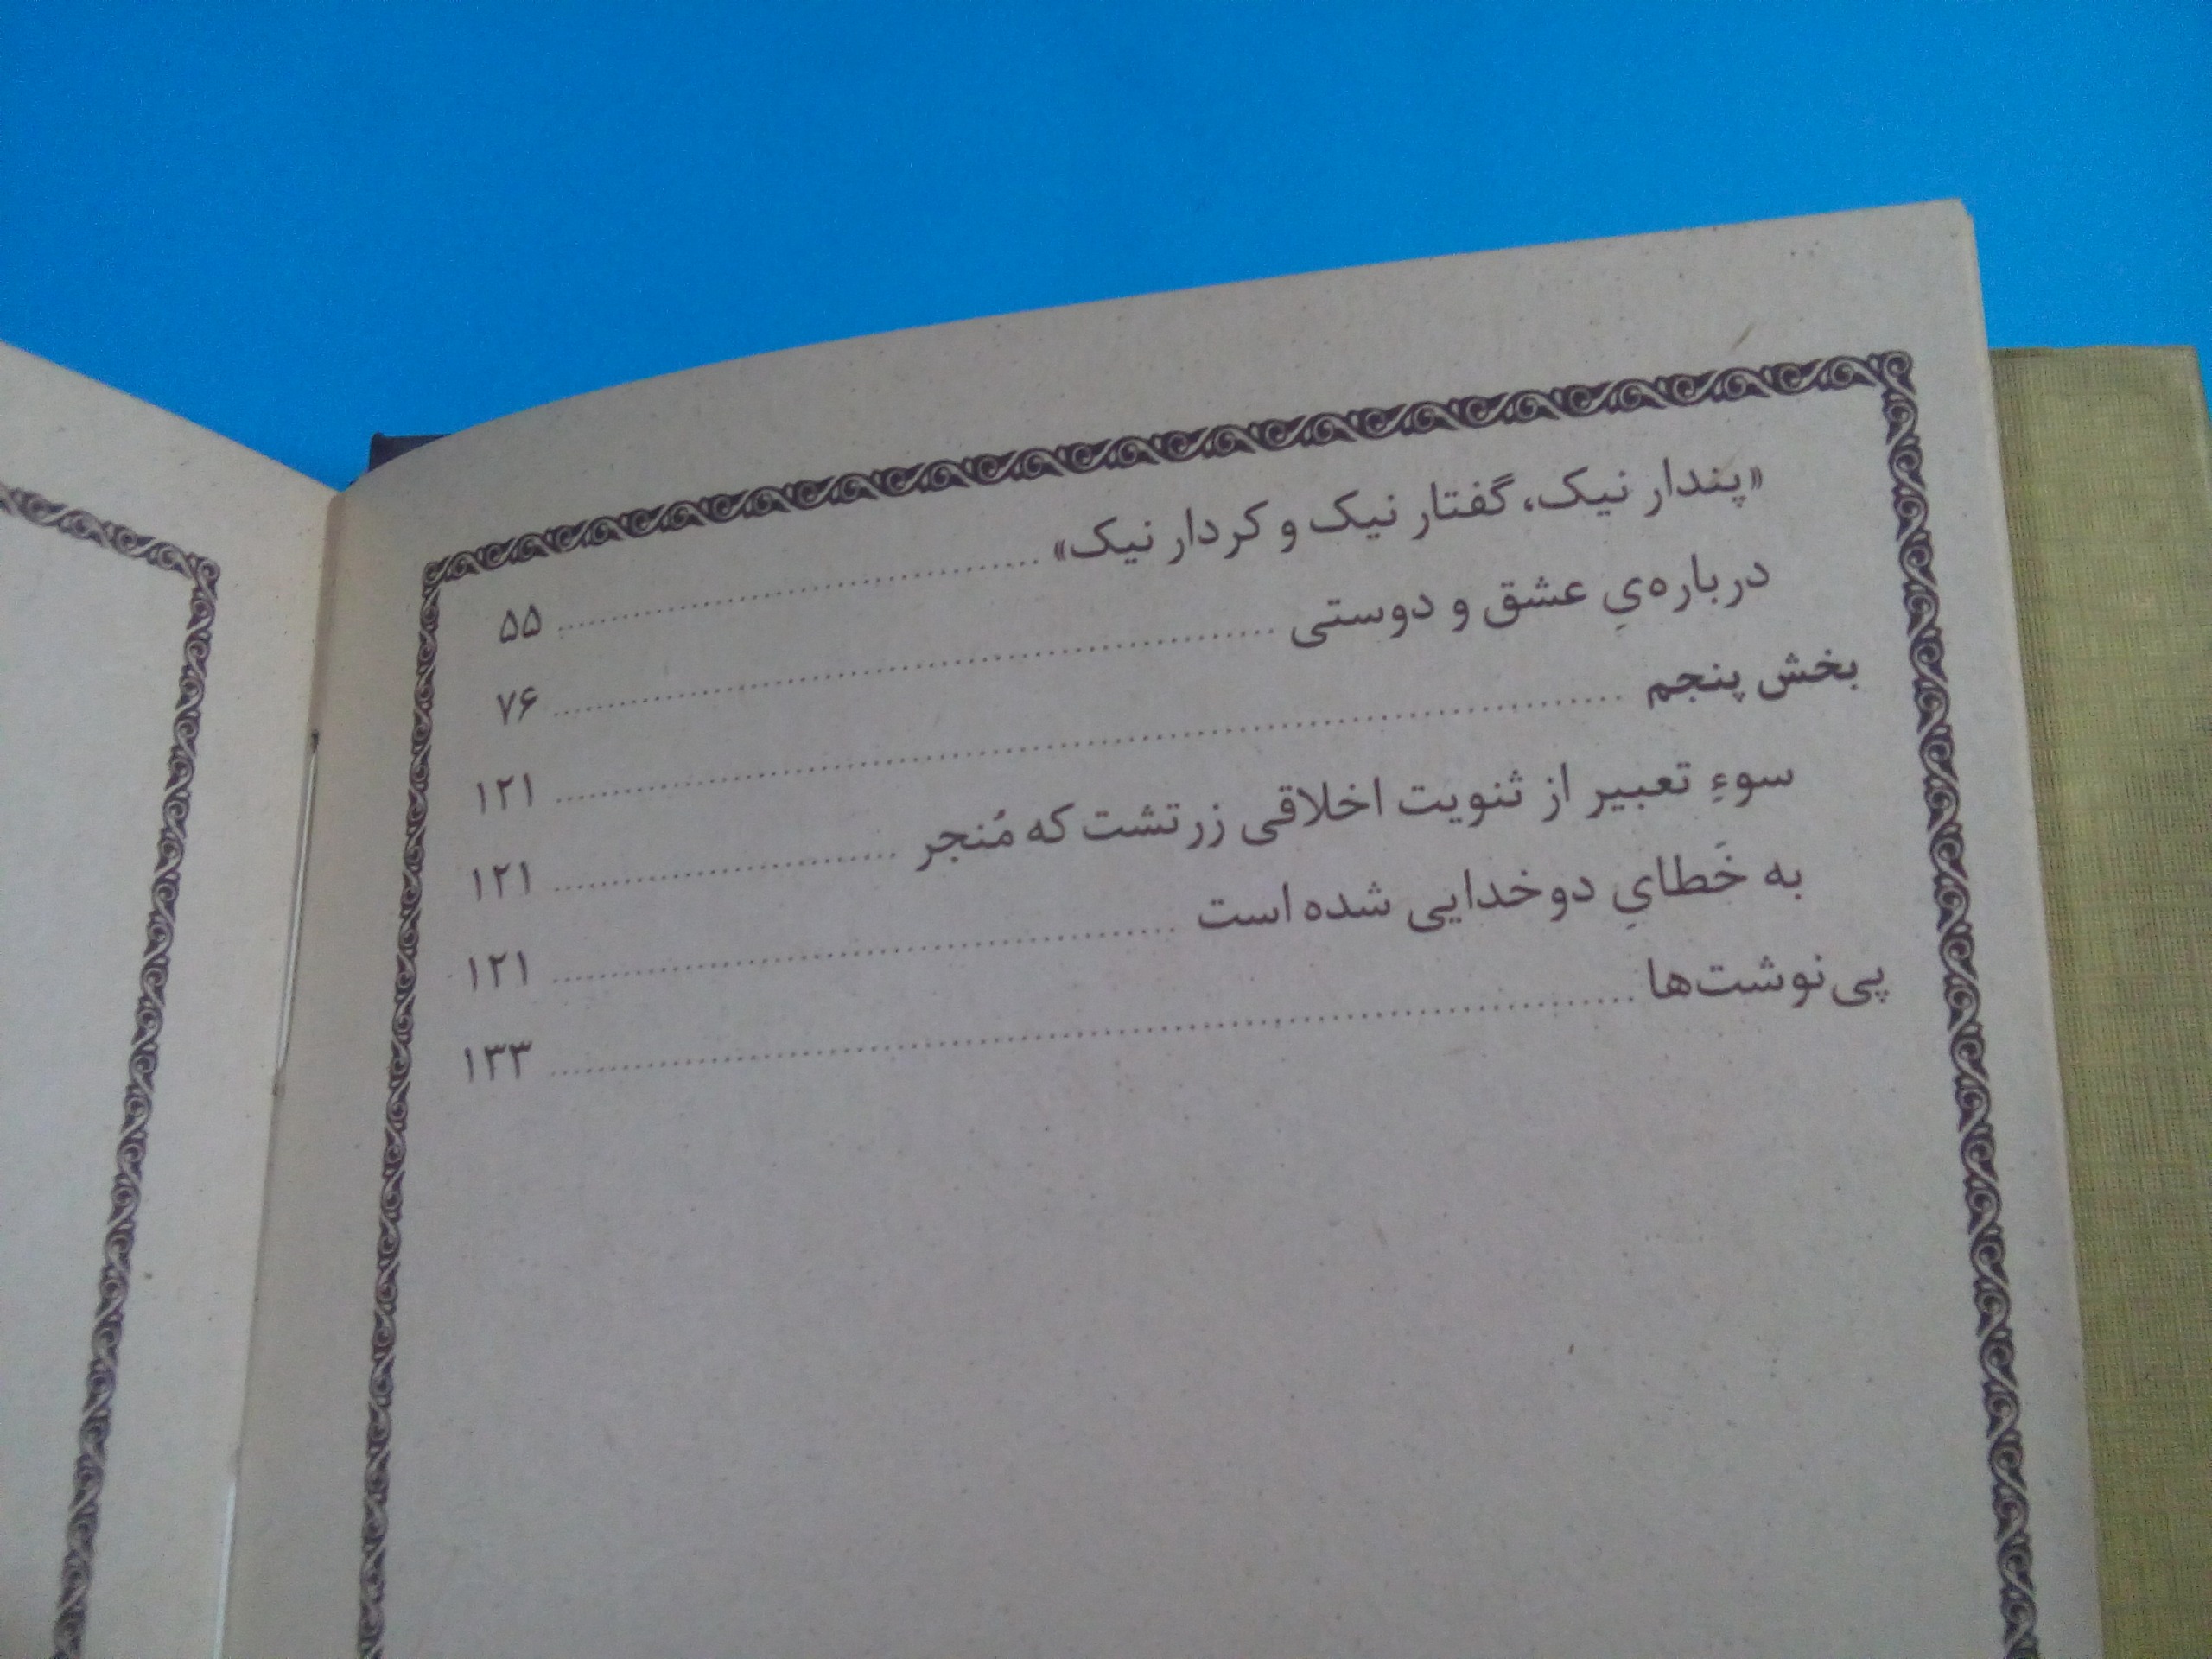 «پندار نیک، گفتار نیک و کردار نیک» ........................ ۵۵
درباره‌یِ عشق و دوستی ........................ ۷۶
بخش پنجم ........................ ۱۲۱
سوءِ تعبیر از ثنویت اخلاقی زرتشت که مُنجر ........................ ۱۲۱
به خَطایِ دوخدایی شده است ........................ ۱۲۱
پی‌نوشت‌ها ........................ ۱۳۳